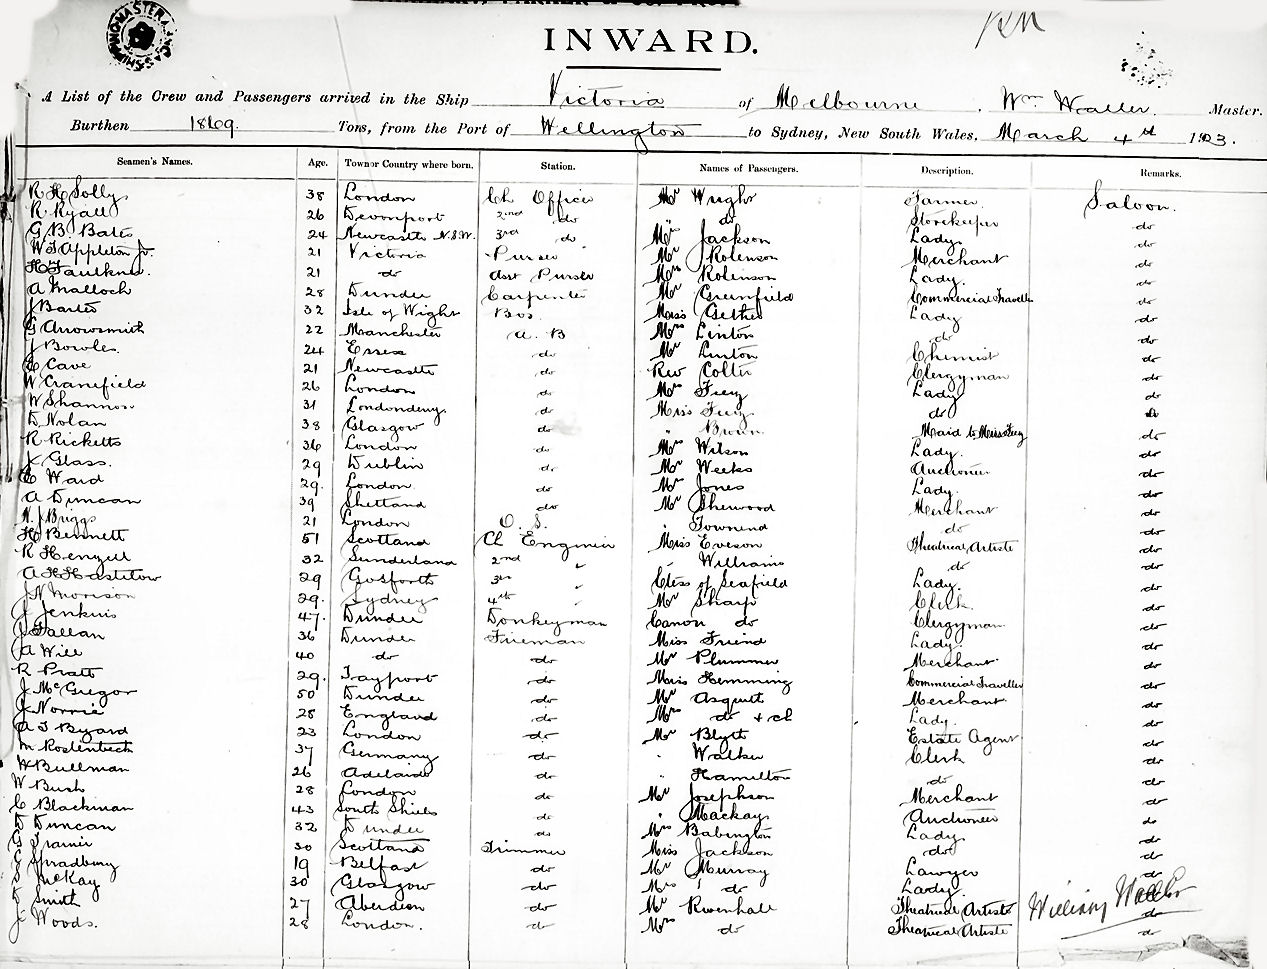 INWARD.
A List of the Crew and Passengers arrived in the Ship Victoria of Melbourne, Wm Waller. Master.
Burthen 1869. Tons, from the Port of Wellington to Sydney, New South Wales, March 4th 1903.
Seamen's Names. Age. Town or Country where born. Station. Names of Passengers. Description. Remarks.
R H Solly 38 London Ch Officer Mr Wright Farmer Saloon.
R Ryall 26 Devonport 2nd do do Storekeeper do
G B Bates 24 Newcastle N.S.W. 3rd do Jackson Lady do
W T Appleton Jr. 21 Victoria Purser Mr J Robinson Merchant do
H Faulkner. 21 do Asst Purser Mrs Robinson Lady. do
A Malloch 28 Dundee Carpenter Mr Greenfield Commercial Traveller do
J Bartes 32 Isle of Wight Bos. Miss Gether Lady do
G Arrowsmith 22 Manchester A. B Mrs Linton do do
J Bowles. 24 Essex do Mr Linton Chemist do
C Cave 21 Newcastle do Rev Colter Clergyman do
W Cranefield 26 London do Mrs Lady do
W Shannon 31 Londonderry do Miss do do
D Nolan 38 Glasgow do " Brown Maid to Miss do
R Ricketts 36 London do Wilson Lady. do
J Glass. 29 Dublin do Mr Weeks Auctioneer do
E Ward 29. London do Jones Lady. do
A Duncan 39 Shetland do Mr Sherwood Merchant do
N. J Briggs 21 London O. S. " Townend do do
H Bennett 51 Scotland Ch Engineer Miss Eveson Theatrical Artiste do
R Henzell 32 Sunderland 2nd " " Williams do do
A H Haslitow 29 Gosforth 3rd " Ctess of Seafield Lady. do
J N Morrison 29. Sydney 4th " Mr Sharp Clerk do
J Jenkins 47. Dundee Donkeyman Canon do Clergyman do
J Fallan 36 Dundee Fireman Miss Friend Lady. do
A Will 40 do do Mr Plummer Merchant do
R Pratt 29. Tayport do Miss Hemming Commercial Traveller do
J McGregor 50 Dundee do Mr Asquith Merchant do
J Norrie 28 England do Mrs do + ch Lady. do
A J Byard 23 London do Mr Blyth Estate Agent do
M Rostenbeck 37 Germany do " Walker Clerk do
W Bullman 26 Adelaide do " Hamilton do do
W Bush 28 London do Mr Josephson Merchant do
C Blackman 43 South Shields do " Mackay Auctioneer do
D Duncan 32 Dundee do Mrs Babington Lady. do
G Trainer 30 Scotland Trimmer Miss Jackson do do
G Spradbury 19 Belfast do Mr Murray Lawyer do
S McKay 30 Glasgow do Mrs do Lady. do
D Smith 27 Aberdeen do Mr Rivenhall Theatrical Artiste do
J Woods. 28 London. do Mrs do Theatrical Artiste do
William Waller